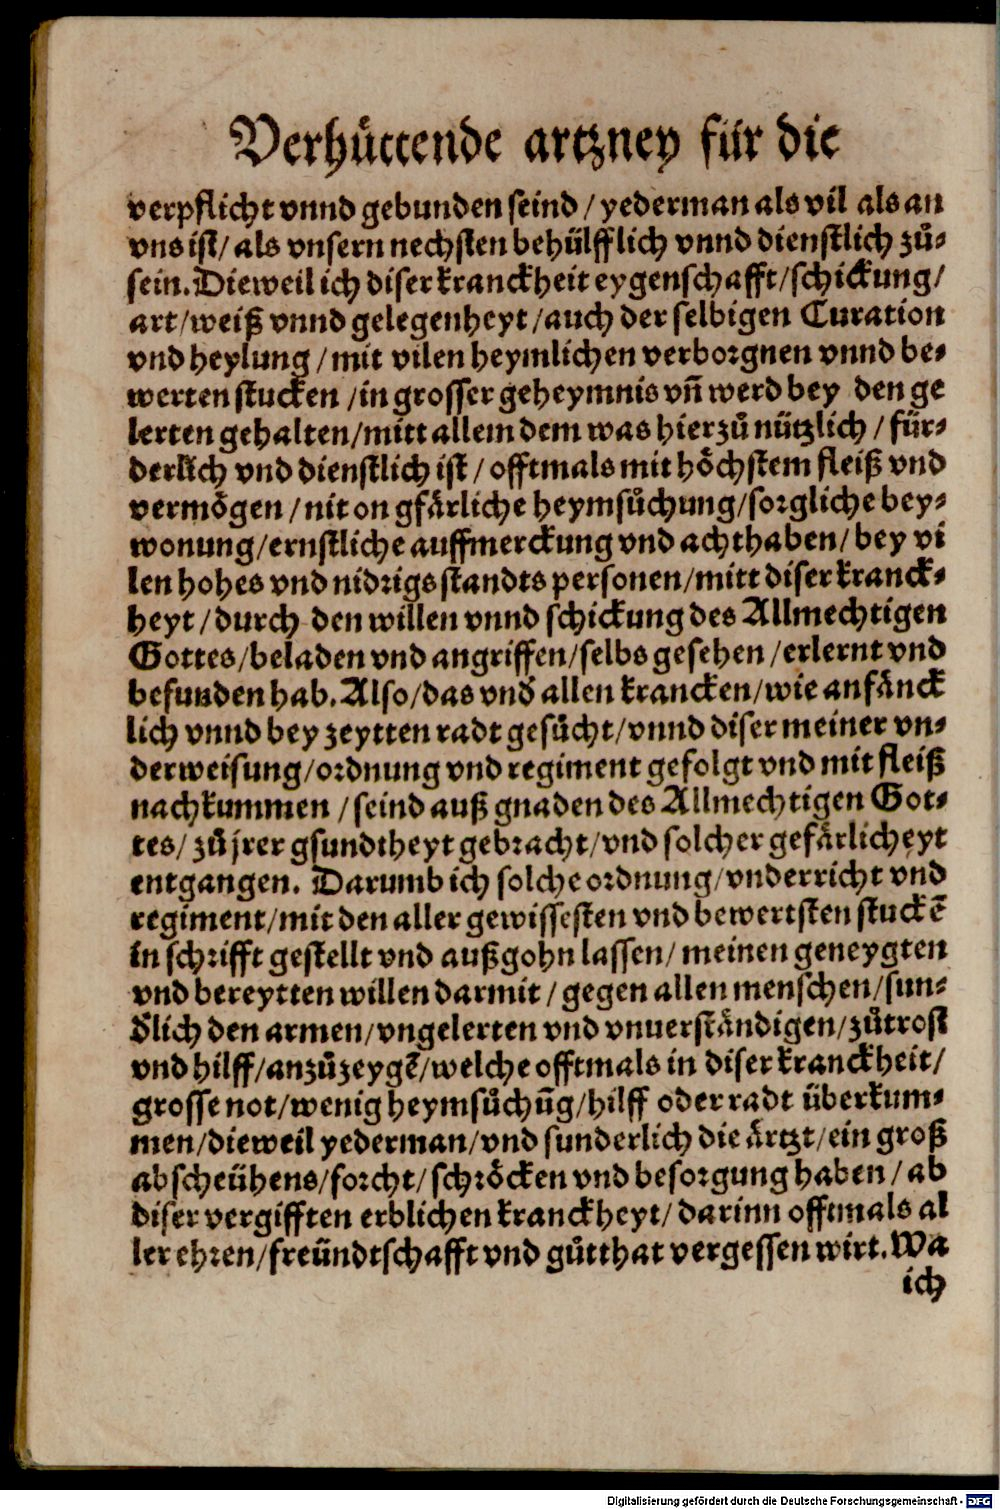 Verhuͤttende artzney für die
verpflicht vnnd gebunden seind / yederman als vil als an
vns ist / als vnsern nechsten behülfflich vnnd dienstlich zuͦ⸗
sein. Dieweil ich diser kranckheit eygenschafft / schickung /
art / weiß vnnd gelegenheyt / auch der selbigen Curation
vnd heylung / mit vilen heymlichen verborgnen vnnd be⸗
werten stucken / in grosser geheymnis vñ werd bey den ge
lerten gehalten / mitt allem dem was hierzuͦ nützlich / für⸗
derlich vnd dienstlich ist / offtmals mit hoͤchstem fleiß vnd
vermoͤgen / nit on gfaͤrliche heymsuͦchung / sorgliche bey⸗
wonung / ernstliche auffmerckung vnd achthaben / bey vi
len hohes vnd nidrigs standts personen / mitt diser kranck⸗
heyt / durch den willen vnnd schickung des Allmechtigen
Gottes / beladen vnd angriffen / selbs gesehen / erlernt vnd
befunden hab. Also / das vnd̕ allen krancken / wie anfaͤnck
lich vnnd bey zeytten radt gesuͦcht / vnnd diser meiner vn⸗
derweisung / ordnung vnd regiment gefolgt vnd mit fleiß
nachkummen / seind auß gnaden des Allmechtigen Got⸗
tes / zuͦ jrer gsundtheyt gebracht / vnd solcher gefaͤrlicheyt
entgangen. Darumb ich solche ordnung / vnderricht vnd
regiment / mit den aller gewissesten vnd bewertsten stuckē
in schrifft gestellt vnd außgohn lassen / meinen geneygten
vnd bereytten willen darmit / gegen allen menschen / sun⸗
d̕lich den armen / vngelerten vnd vnuerstaͤndigen / zuͦ trost
vnd hilff / anzuͦzeygē / welche offtmals in diser kranckheit /
grosse not / wenig heymsuͦchūg / hilff oder radt überkum⸗
men / dieweil yederman / vnd sunderlich die aͤrtzt / ein groß
abscheühens / forcht / schroͤcken vnd besorgung haben / ab
diser vergifften erblichen kranckheyt / darinn offtmals al
ler ehren / freündtschafft vnd guͦtthat vergessen wirt. Wa
ich
Digitalisierung gefördert durch die Deutsche Forschungsgemeinschaft - DFG